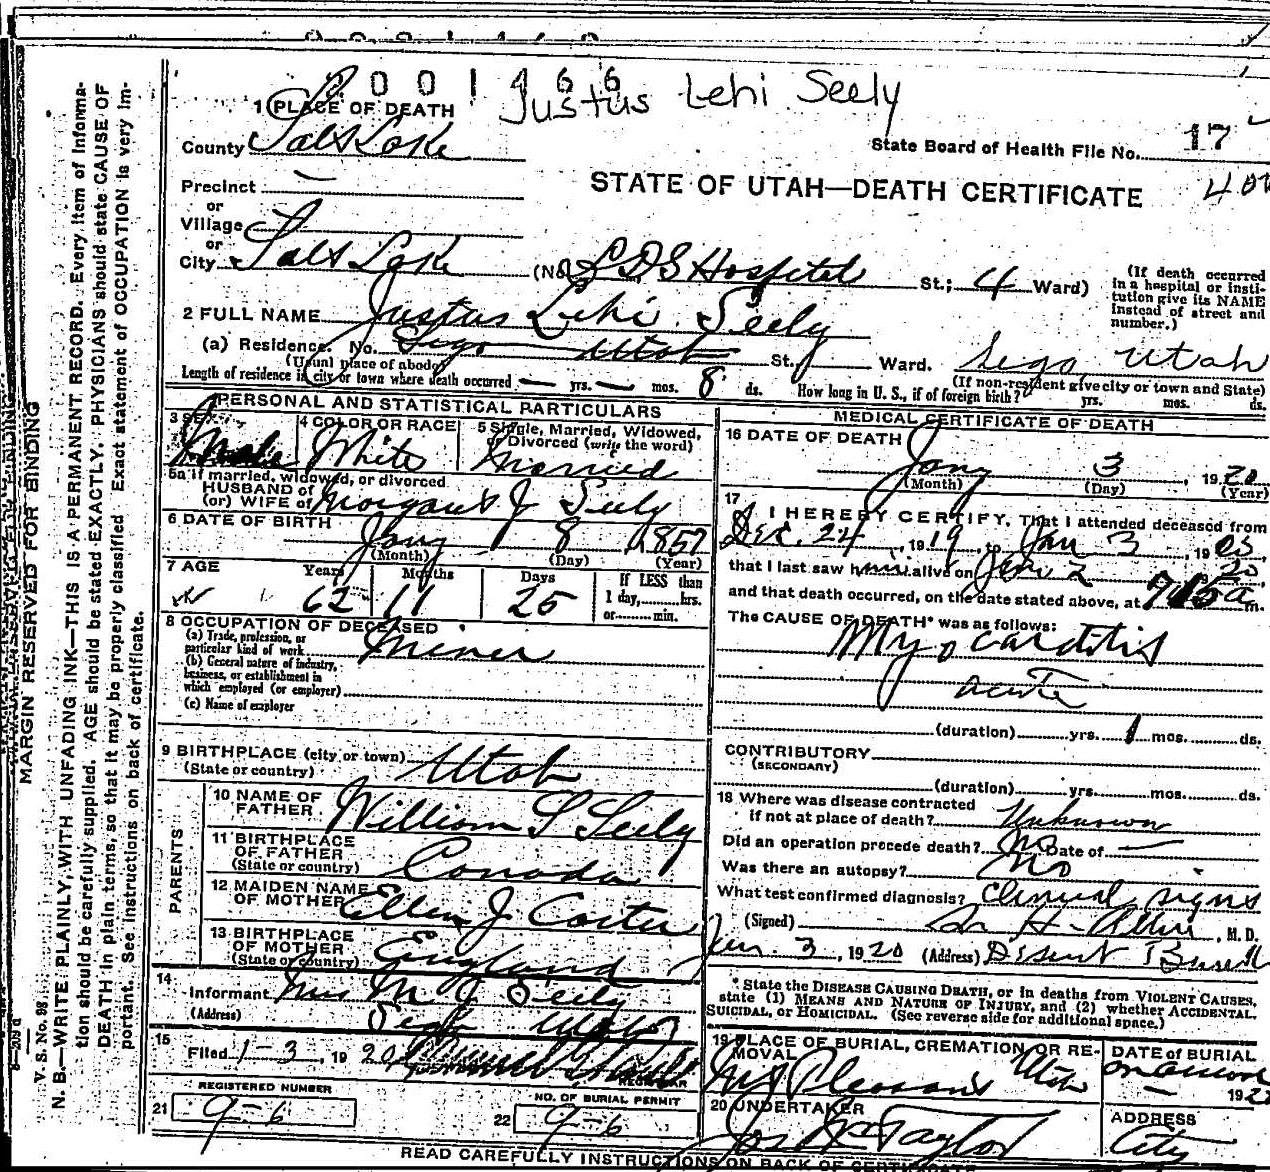 001466
Justus Lehi Seely
1 PLACE OF DEATH
County Salt Lake
State Board of Health File No. 17
Precinct —
STATE OF UTAH—DEATH CERTIFICATE
or
Village
or
City Salt Lake (No. LDS Hospital St.; 4 Ward)
(If death occurred in a hospital or institution give its NAME instead of street and number.)
2 FULL NAME Justus Lehi Seely
(a) Residence. No. Sego Utah St. Ward. Sego, Utah
(Usual place of abode) (If non-resident give city or town and State)
Length of residence in city or town where death occurred — yrs. — mos. 8 ds. How long in U. S., if of foreign birth? yrs. mos. ds.
PERSONAL AND STATISTICAL PARTICULARS
3 SEX Male
4 COLOR OR RACE White
5 Single, Married, Widowed, or Divorced (write the word) Married
5a If married, widowed, or divorced
HUSBAND of
(or) WIFE of J Seely
6 DATE OF BIRTH Jany 8 1857
(Month) (Day) (Year)
7 AGE Years 62 Months 11 Days 25 If LESS than 1 day, hrs. or min.
8 OCCUPATION OF DECEASED
(a) Trade, profession, or particular kind of work Miner
(b) General nature of industry, business, or establishment in which employed (or employer)
(c) Name of employer
9 BIRTHPLACE (city or town) Utah
(State or country)
PARENTS
10 NAME OF FATHER William S Seely
11 BIRTHPLACE OF FATHER (State or country) Canada
12 MAIDEN NAME OF MOTHER Ellen J
13 BIRTHPLACE OF MOTHER (State or country) England
14 Informant Mrs M J Seely
(Address) Sego Utah
15 Filed 1-3, 1920
REGISTRAR
REGISTERED NUMBER
21 9-6
NO. OF BURIAL PERMIT
22 9-6
MEDICAL CERTIFICATE OF DEATH
16 DATE OF DEATH
Jany 3, 1920
(Month) (Day) (Year)
17 I HEREBY CERTIFY, That I attended deceased from
Dec. 24, 1919, to Jan 3, 19
that I last saw him alive on Jan 2 1920
and that death occurred, on the date stated above, at 715 a m.
The CAUSE OF DEATH* was as follows:
Myocarditis
acute
(duration) yrs. 1 mos. ds.
CONTRIBUTORY
(SECONDARY)
(duration) yrs. mos. ds.
18 Where was disease contracted
if not at place of death? Unknown
Did an operation precede death? No Date of —
Was there an autopsy? No
What test confirmed diagnosis? Clinical signs
(Signed) M. D.
Jan. 3, 1920 (Address)
* State the DISEASE CAUSING DEATH, or in deaths from VIOLENT CAUSES, state (1) MEANS AND NATURE OF INJURY, and (2) whether ACCIDENTAL, SUICIDAL, or HOMICIDAL. (See reverse side for additional space.)
19 PLACE OF BURIAL, CREMATION, OR REMOVAL Mt Pleasant Utah
DATE of BURIAL
20 UNDERTAKER Taylor
ADDRESS City
READ CAREFULLY INSTRUCTIONS ON BACK OF CERTIFICATE
MARGIN RESERVED FOR BINDING
V. S. No. 98
N. B.—WRITE PLAINLY, WITH UNFADING INK—THIS IS A PERMANENT RECORD. Every item of information should be carefully supplied. AGE should be stated EXACTLY. PHYSICIANS should state CAUSE OF DEATH in plain terms, so that it may be properly classified. Exact statement of OCCUPATION is very important. See instructions on back of certificate.